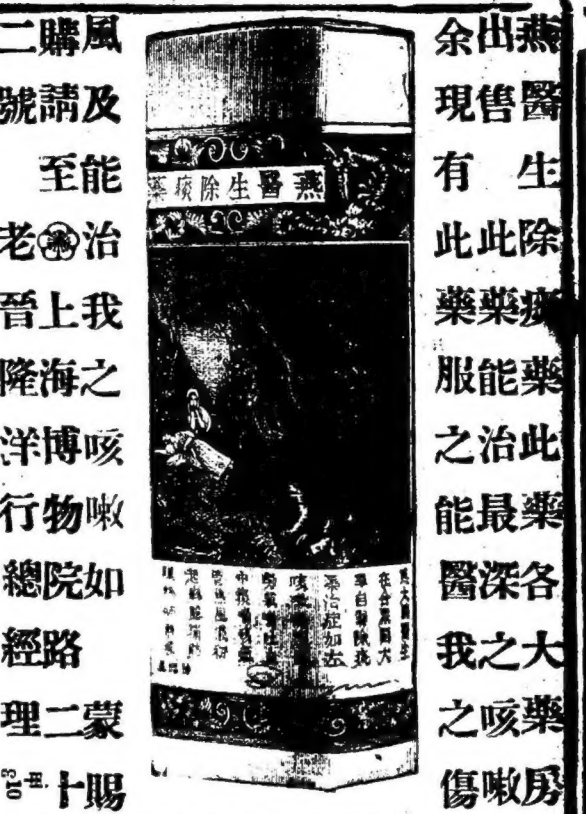 燕醫生除痰藥此藥各大藥房
出售此藥能治最深之咳嗽
余現有此藥服之能醫我之傷
燕醫生除痰藥
在合眾國大
治症如左
風及能治我之咳嗽如蒙賜
購請至上海博物院路二十
二號老晉隆洋行總經理